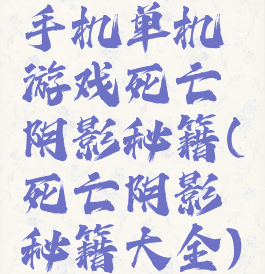 手机单机
游戏死亡
阴影秘籍(
死亡阴影
秘籍大全)